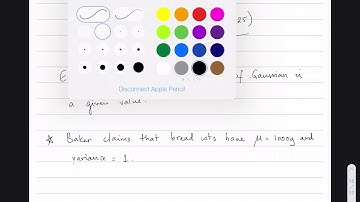 25)
Disconnect Apple Pencil
E of Gaussian is
a given value.
* Baker claims that bread wts have μ = 1000g and
variance = 1.